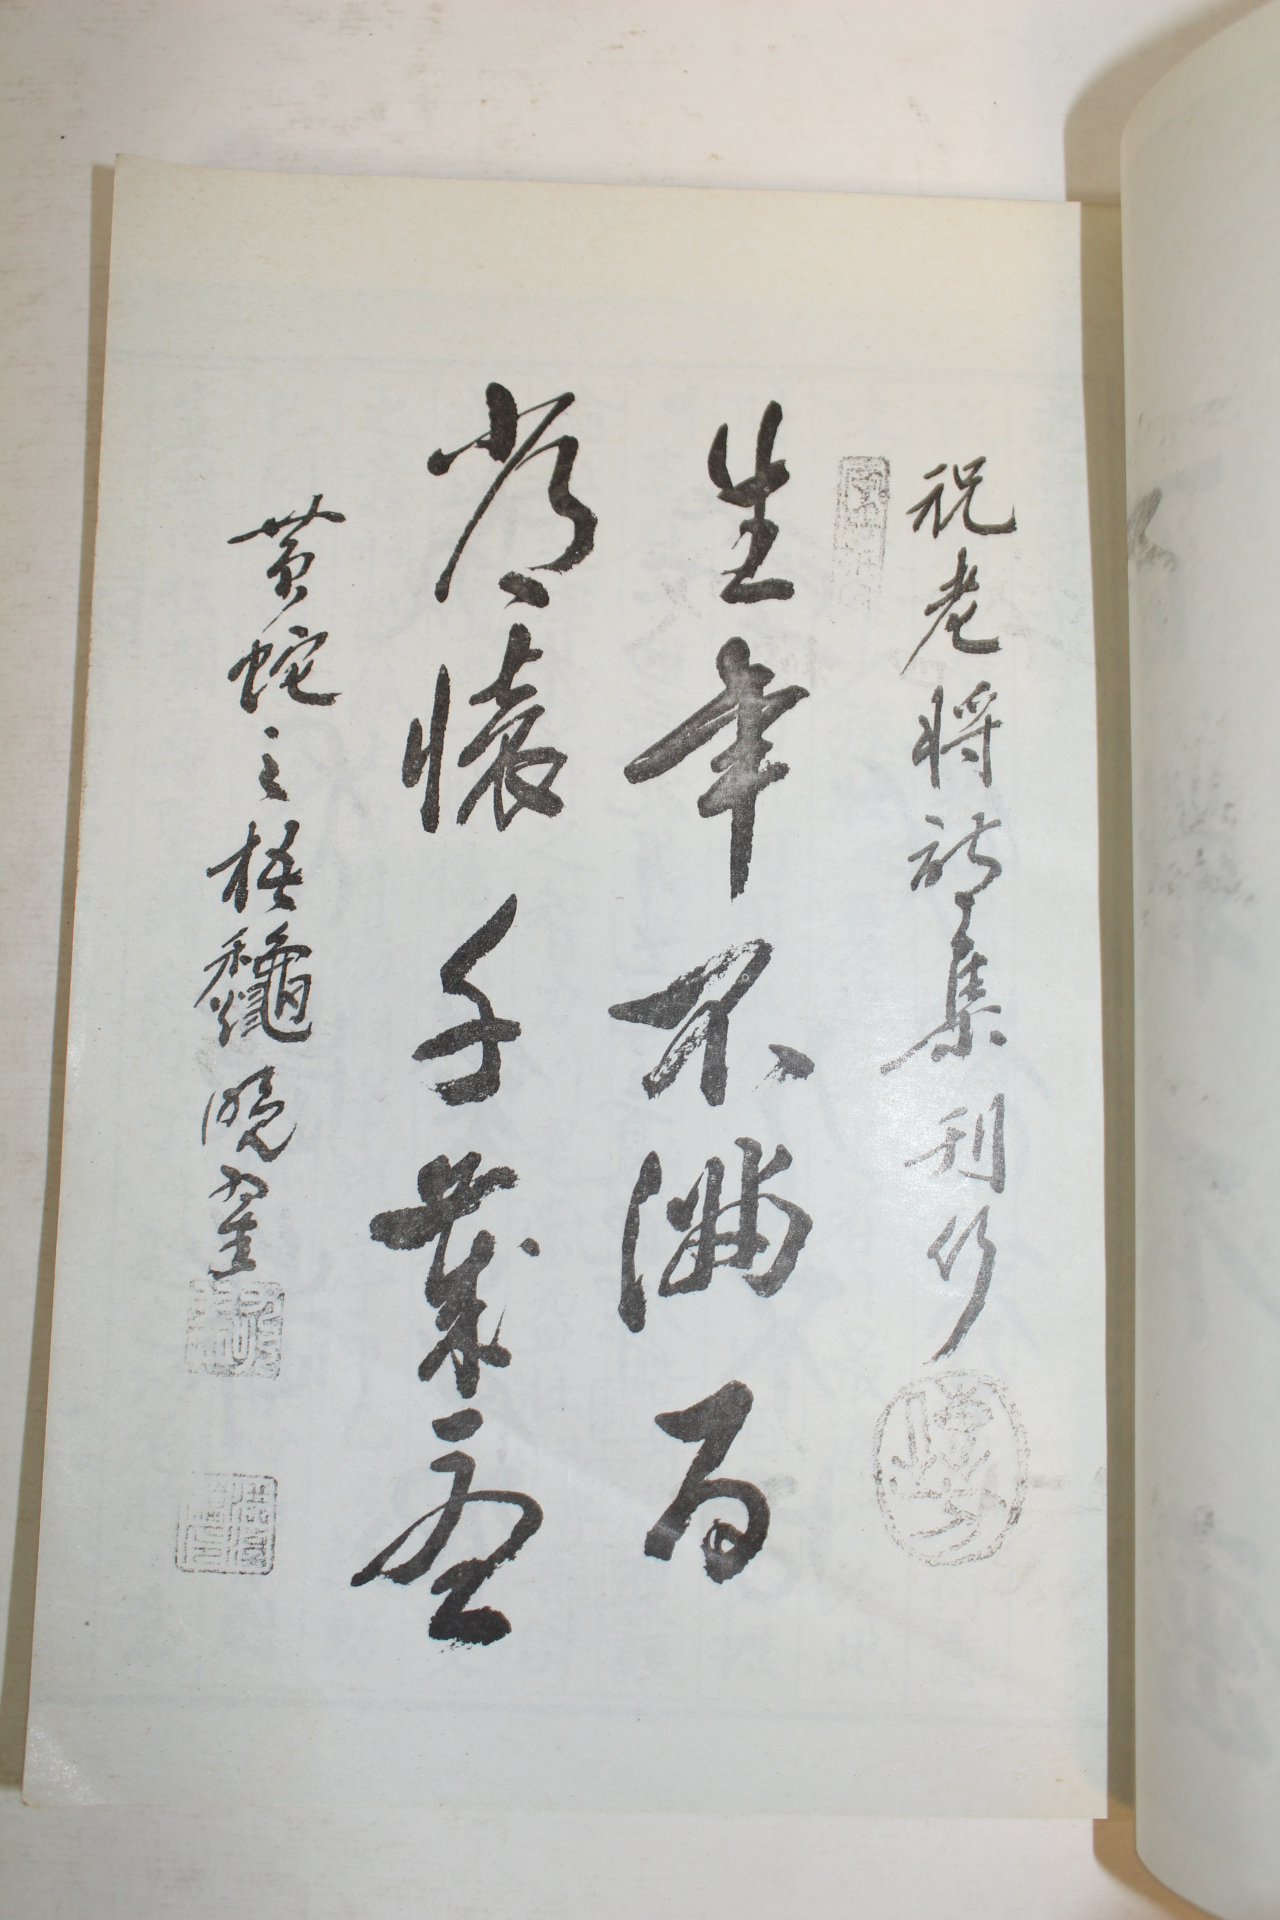 祝老將詩集刊行
生年不滿百
常懷千歲憂
黃蛇之梧龝 曉